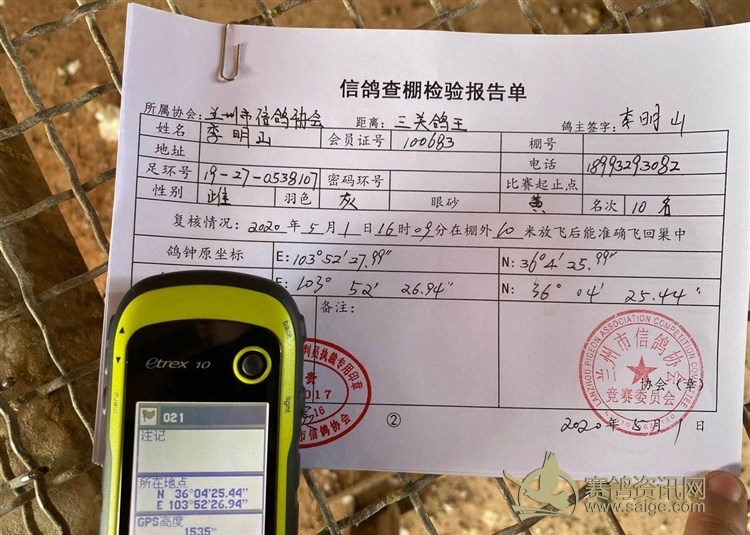 信鸽查棚检验报告单
所属协会: 兰州市信鸽协会 距离: 三关鸽王 鸽主签字: 李明山
姓名 李明山 会员证号 100683 棚号
地址 电话 18993293082
足环号 19-27-0538107 密码环号 比赛起止点
性别 雄 羽色 灰 眼砂 黄 名次 10名
复核情况: 2020年5月1日16时09分在棚外60米放飞后能准确飞回巢中
鸽钟原坐标 E: 103°52'27.99" N: 36°4'25.99"
E: 103° 52' 26.94" N: 36° 04' 25.44"
备注:
判员执裁专用印章
贵
017
16
市信鸽协会
LANZHOU PIGEON ASSOCIATION COMPETITION
兰州市信鸽协会
竞赛委员会
协会(章)
2020年5月1日
②
etrex 10
back
light
021
注记
所在地点
N 36°04'25.44"
E 103°52'26.94"
GPS高度
1535
赛鸽资讯网
www.saige.com